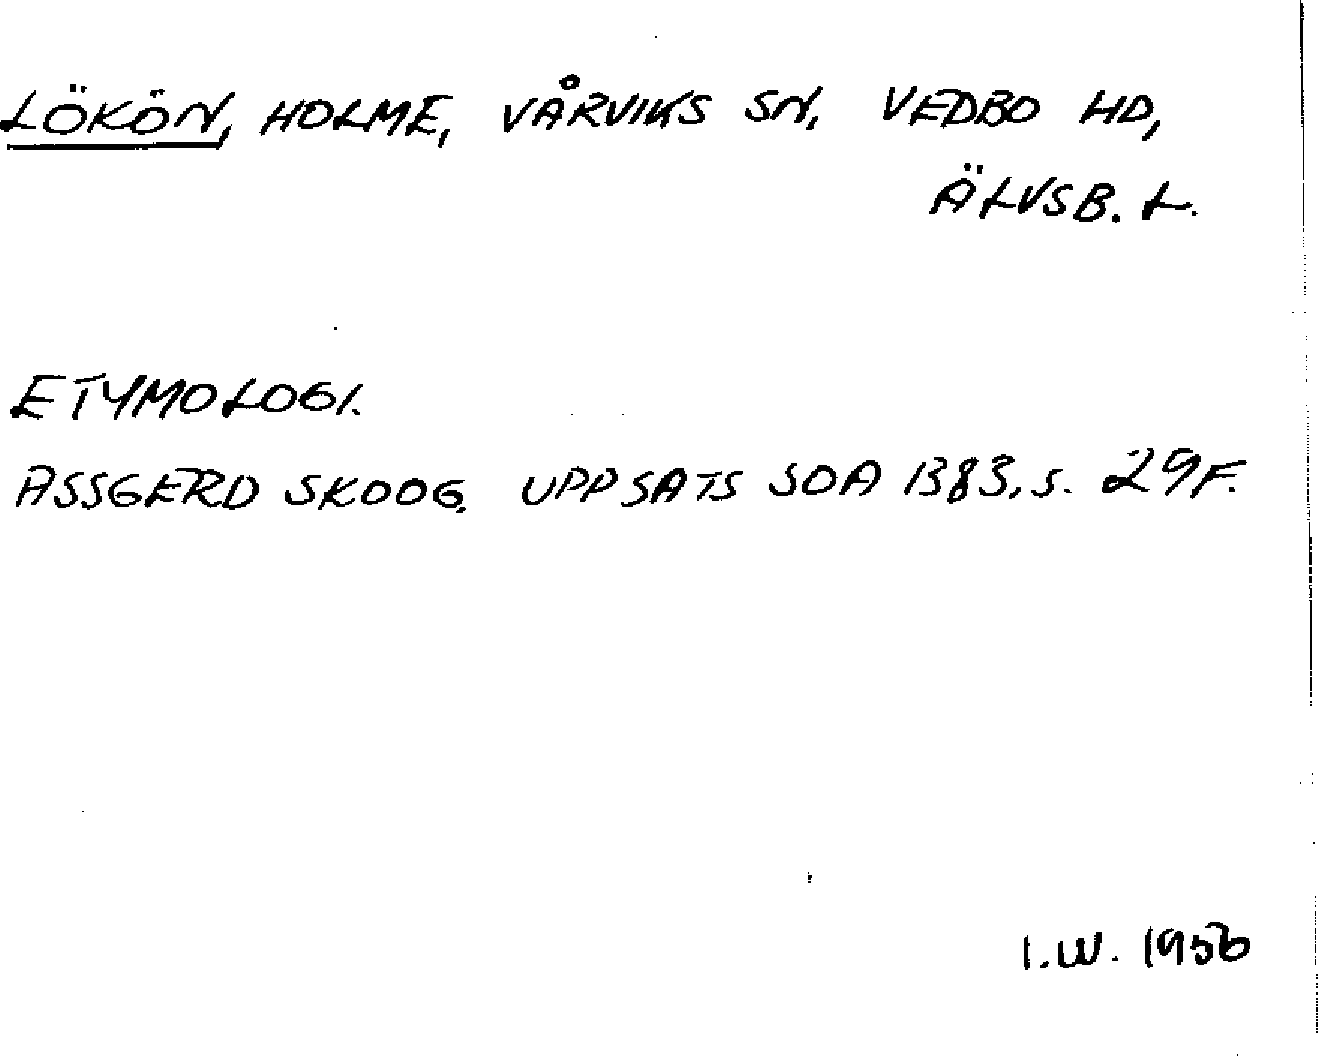 LÖKÖN, HOLME, VÅRVIKS SN, VEDBO HD,
ÄLVSB. L.
ETYMOLOGI.
ASSGERD SKOOG, UPPSATS SOA 1383, S. 29F.
I.W. 1956